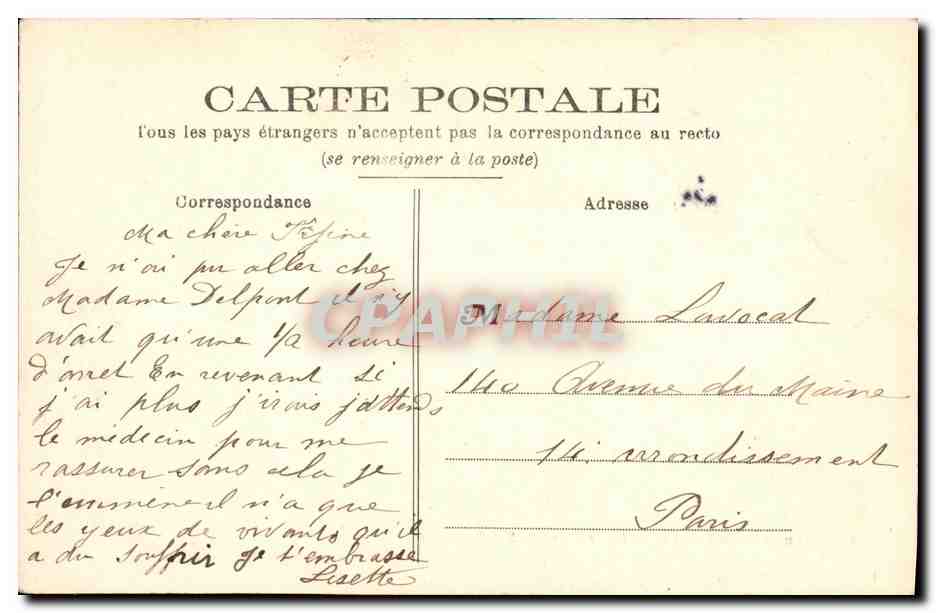 CARTE POSTALE
Tous les pays étrangers n'acceptent pas la correspondance au recto
(se renseigner à la poste)
Correspondance
Ma chère
Je n'ai pu aller chez
Madame Delpont il n'y
avait qu'une 1/2 heure
d'arret En revenant si
j'ai plus j'irois j'attends
le médecin pour me
rassurer sans cela je
l'emmène il n'a que
les yeux de vivants qu'il
a du souffrir Je t'embrasse
Lisette
Adresse
Madame Lavocat
140 Avenue du Maine
14 arrondissement
Paris
CPAPHIL